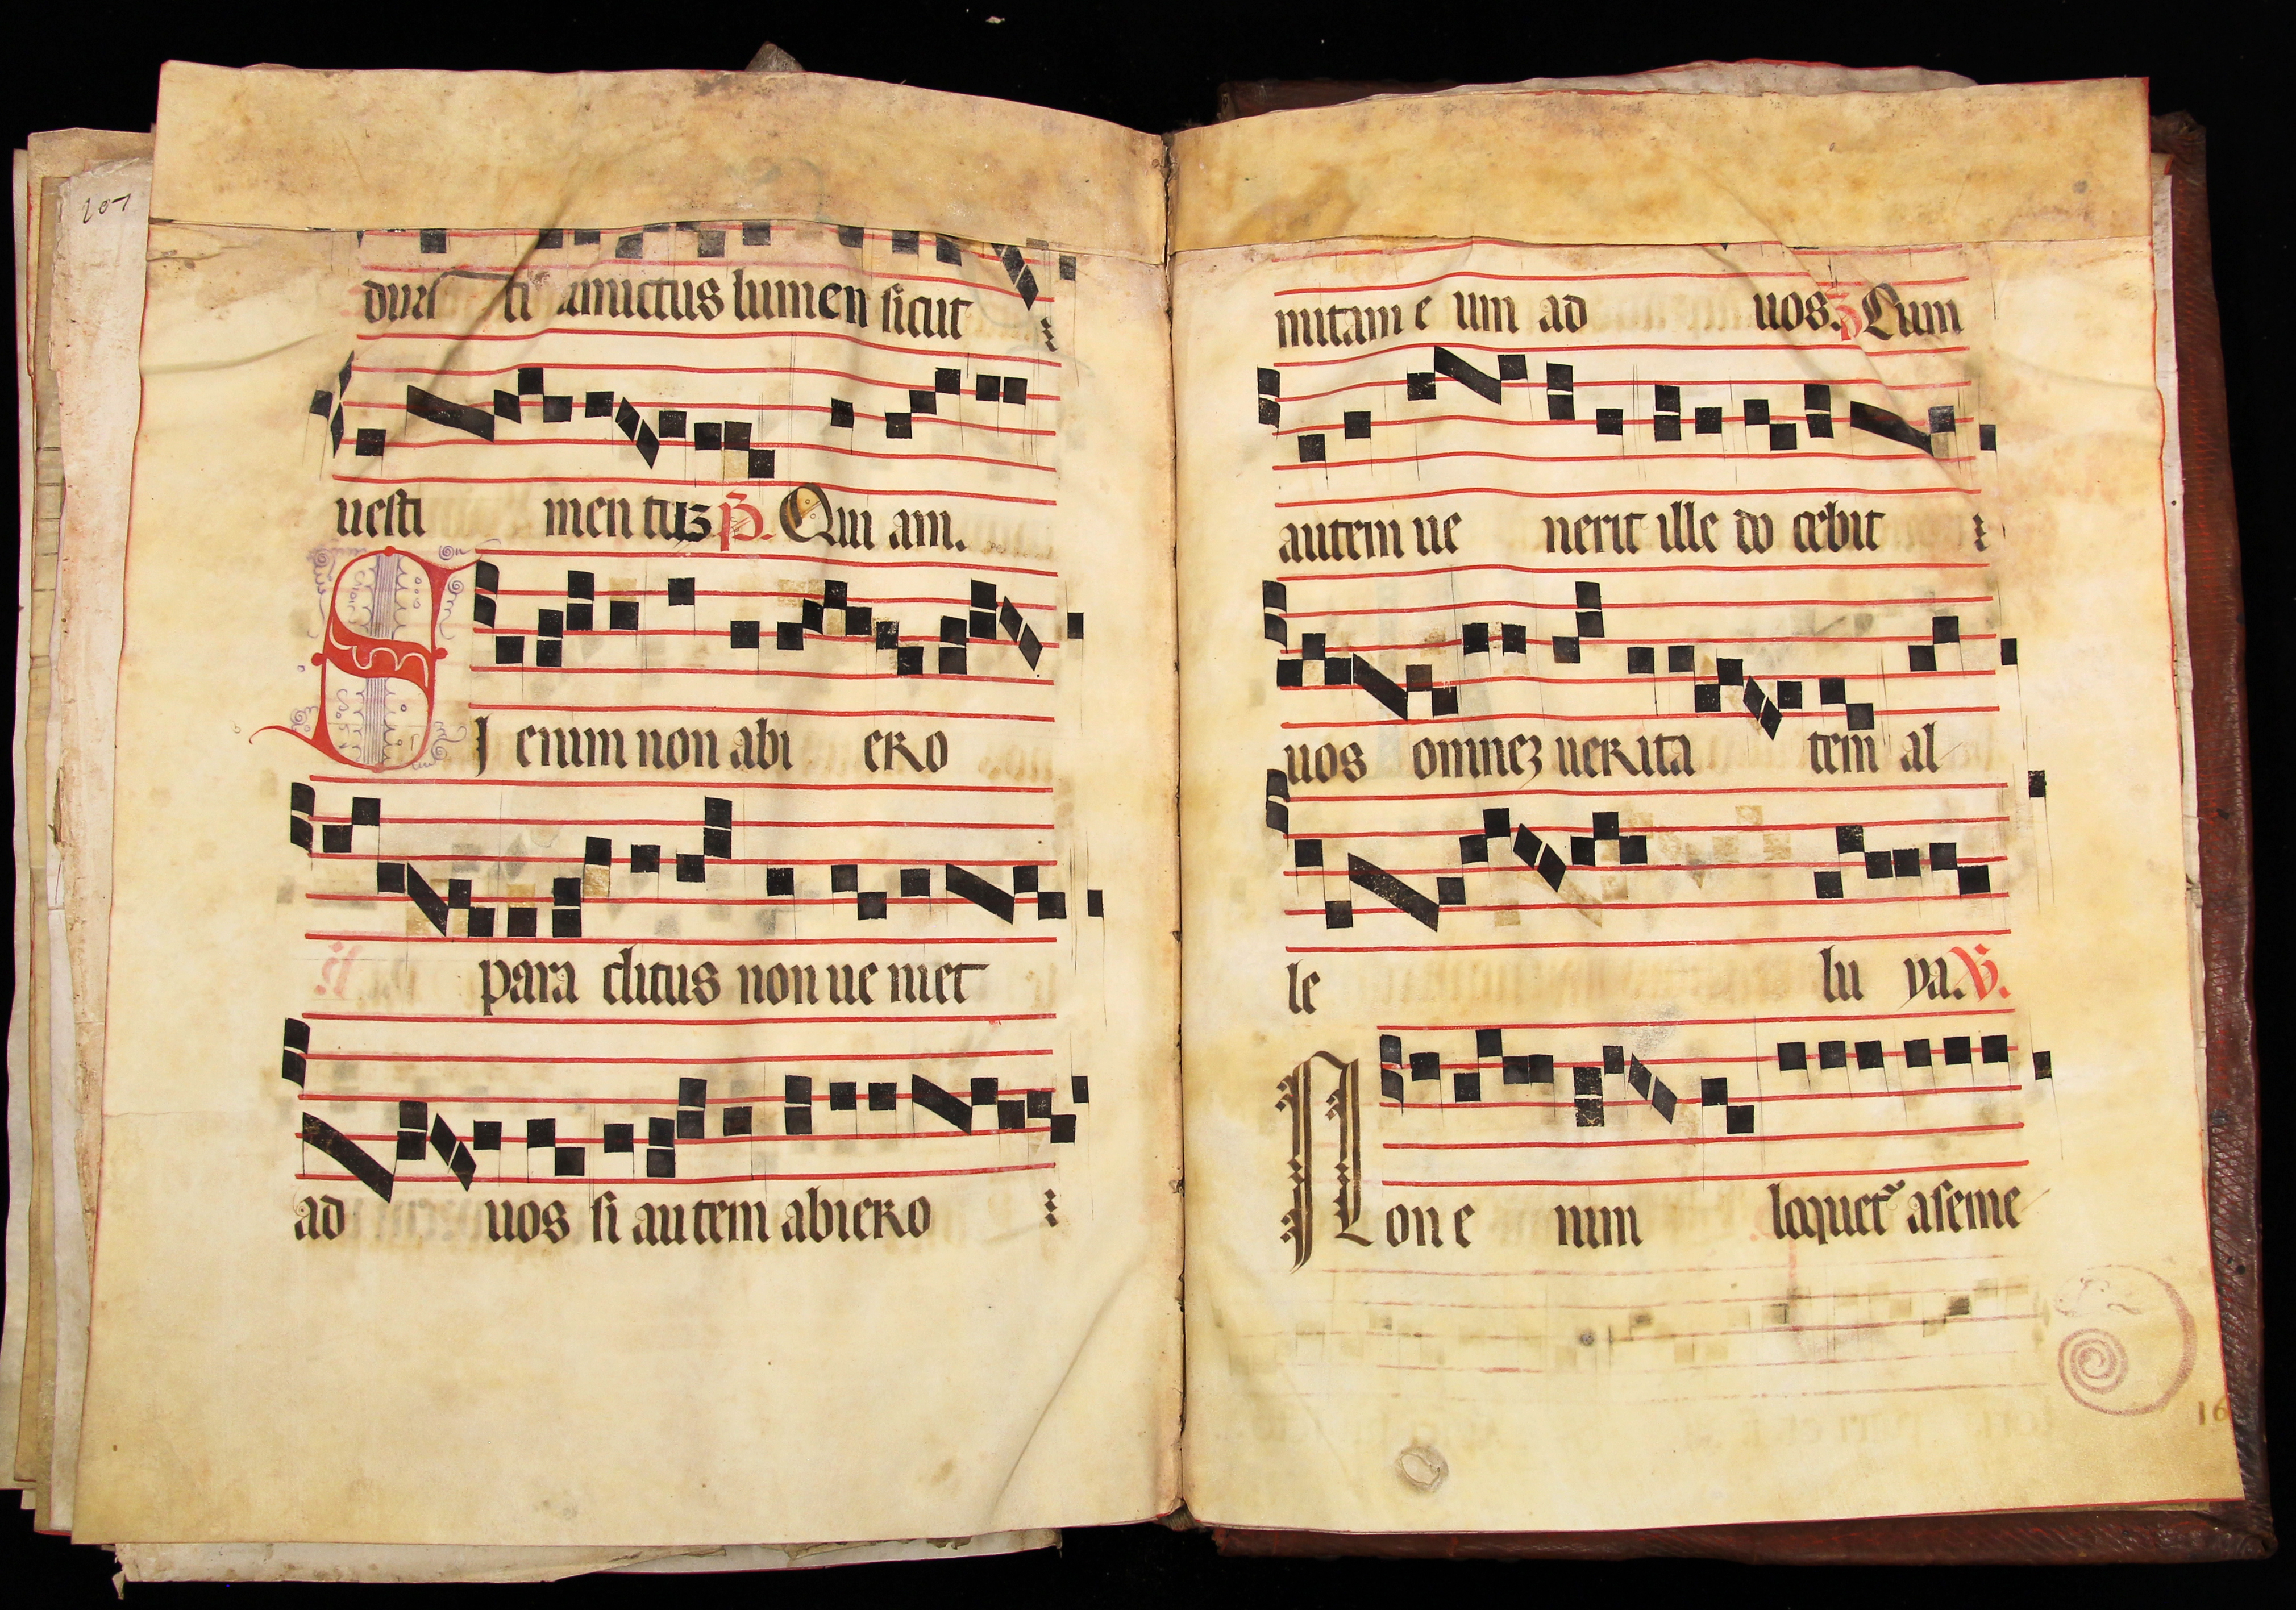 207
duisti amictus lumen sicut
uesti mentuz P. Qui am.
SI enim non abi ero
para clitus non ue niet
ad uos si autem abiero
mitam e um ad uos. P Cum
autem ue nerit ille do cebit
uos omnez uerita tem al
le lu ya. V.
Non e nim loquet᷑ aseme
16